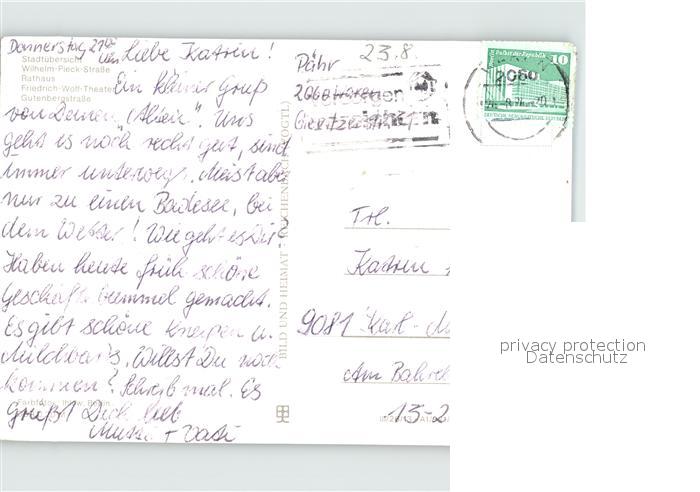 Donnerstag
Liebe Katrin!
Stadtübersicht
Wilhelm-Pieck-Straße
Rathaus
Friedrich-Wolf-Theater
Gutenbergstraße
Ein kleiner Gruß
von Deinen "Alten". Uns
geht es noch recht gut, sind
immer unterwegs. Meist aber
nur zu einen Badesee, bei
dem Wetter! Wie geht es Dir?
Haben heute früh schöne
Geschäftsbummel gemacht.
Es gibt schöne Kneipen u.
Milchbars. Willst Du noch
kommen? Schreib mal. Es
grüßt Dich lieb
Mutti + Vati
BILD UND HEIMAT
REICHENBACH (VOGTL)
Pähr
23.8.
2060 Waren
2060
Palast der Republik
10
DEUTSCHE DEMOKRATISCHE REPUBLIK
Frl.
Katrin
9081 Karl-M
Am
13-2
privacy protection
Datenschutz